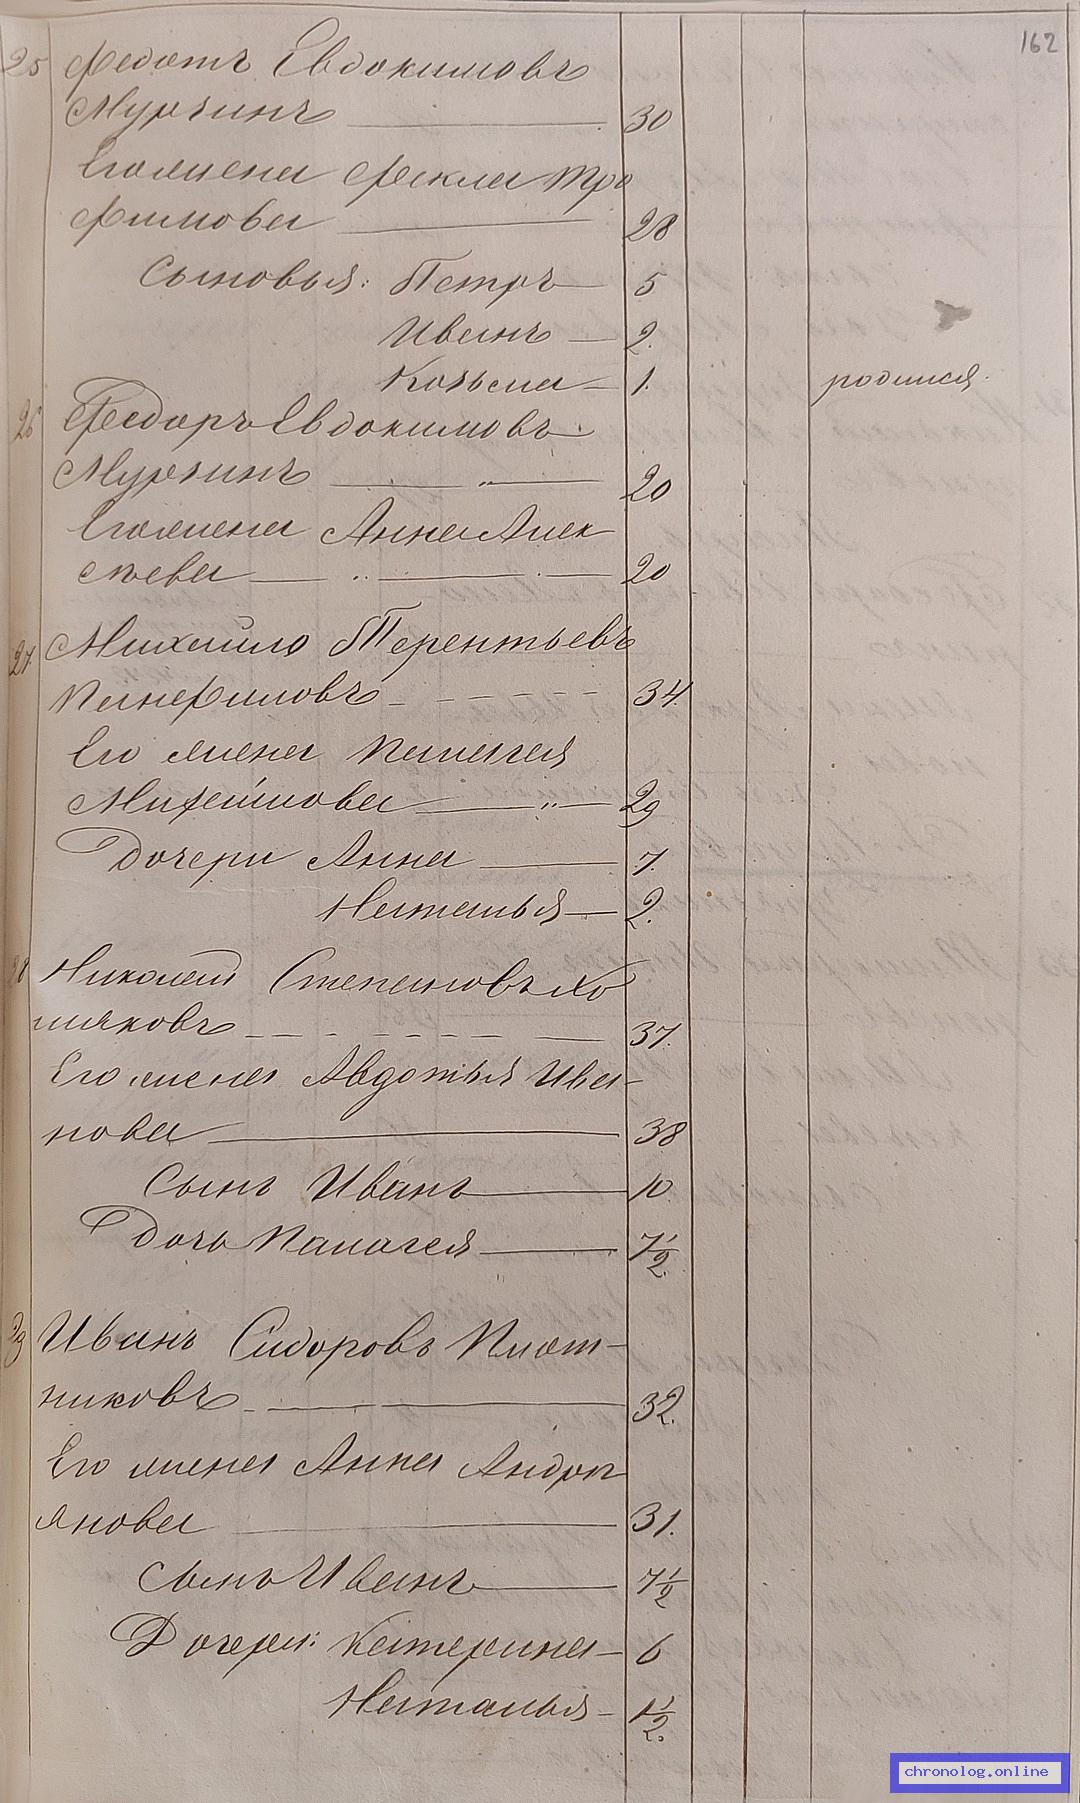 162
25 Федотъ Евдокимовъ
Мурзинъ 30
Его жена Фекла Тро
фимова 28
Сыновья: Петръ 5
Иванъ 2.
Козьма 1. родился.
26 Федоръ Евдокимовъ
Мурзинъ 20
Его жена Анна Алек
сѣева 20
27 Михайло Терентьевъ
Панфиловъ 34.
Его жена Палагея
Михайлова 29
Дочери Анна 7.
Наталья 2.
28 Николай Степановъ Хо
мяковъ 37.
Его жена Авдотья Ива-
нова 38
Сынъ Иванъ 10
Дочь Палагея 7 1/2.
29 Иванъ Сидоровъ Плот-
никовъ 32.
Его жена Анна Андрі
янова 31.
Сынъ Иванъ 7 1/2
Дочери: Катерина 6
Наталья 1 1/2.
chronolog.online